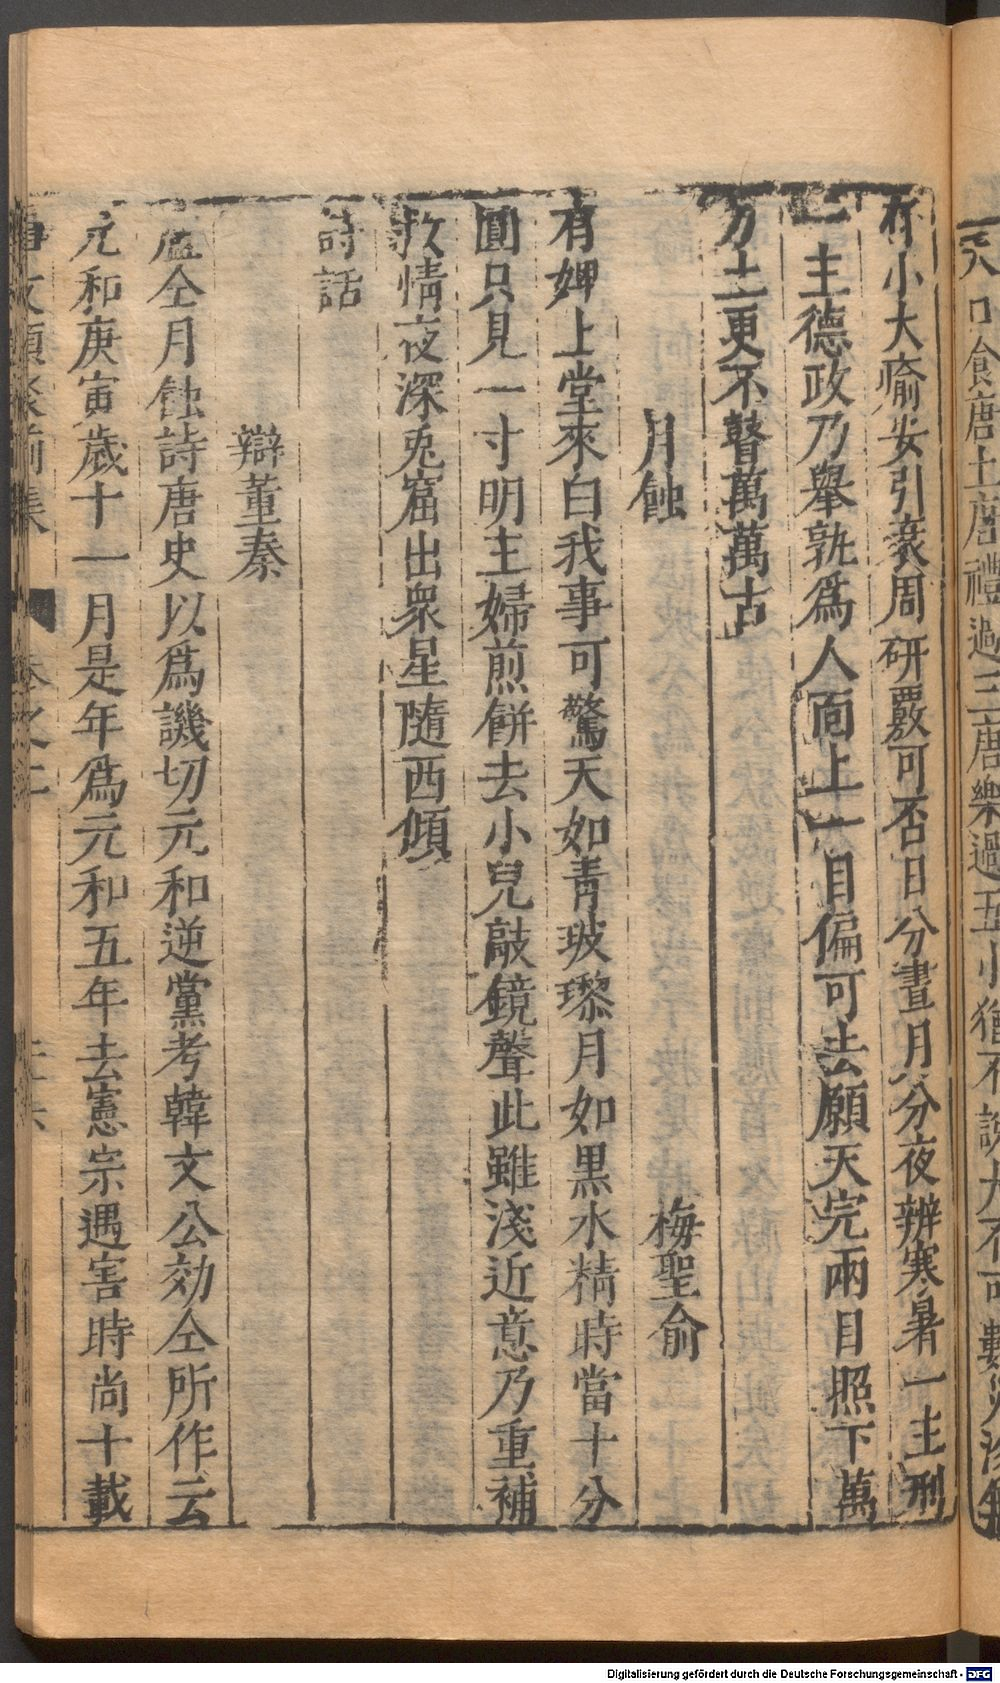 有小大瘉安引衰周研覈可否日分晝月分夜辨寒暑一主刑
二主德政乃舉孰爲人面上一目偏可去願天完兩目照下萬
方土更不瞽萬萬古
月蝕 梅聖俞
有婢上堂來白我事可驚天如青玻瓈月如黒水精時當十分
圓只見一寸明主婦煎餅去小兒敲鏡聲此雖淺近意乃重補
救情夜深兎窟出衆星隨西傾
詩話
辯董秦
盧仝月蝕詩唐史以爲譏切元和逆黨考韓文公効仝所作云
元和庚寅歲十一月是年爲元和五年去憲宗遇害時尚十載
事文類聚前集 卷之二
Digitalisierung gefördert durch die Deutsche Forschungsgemeinschaft - DFG